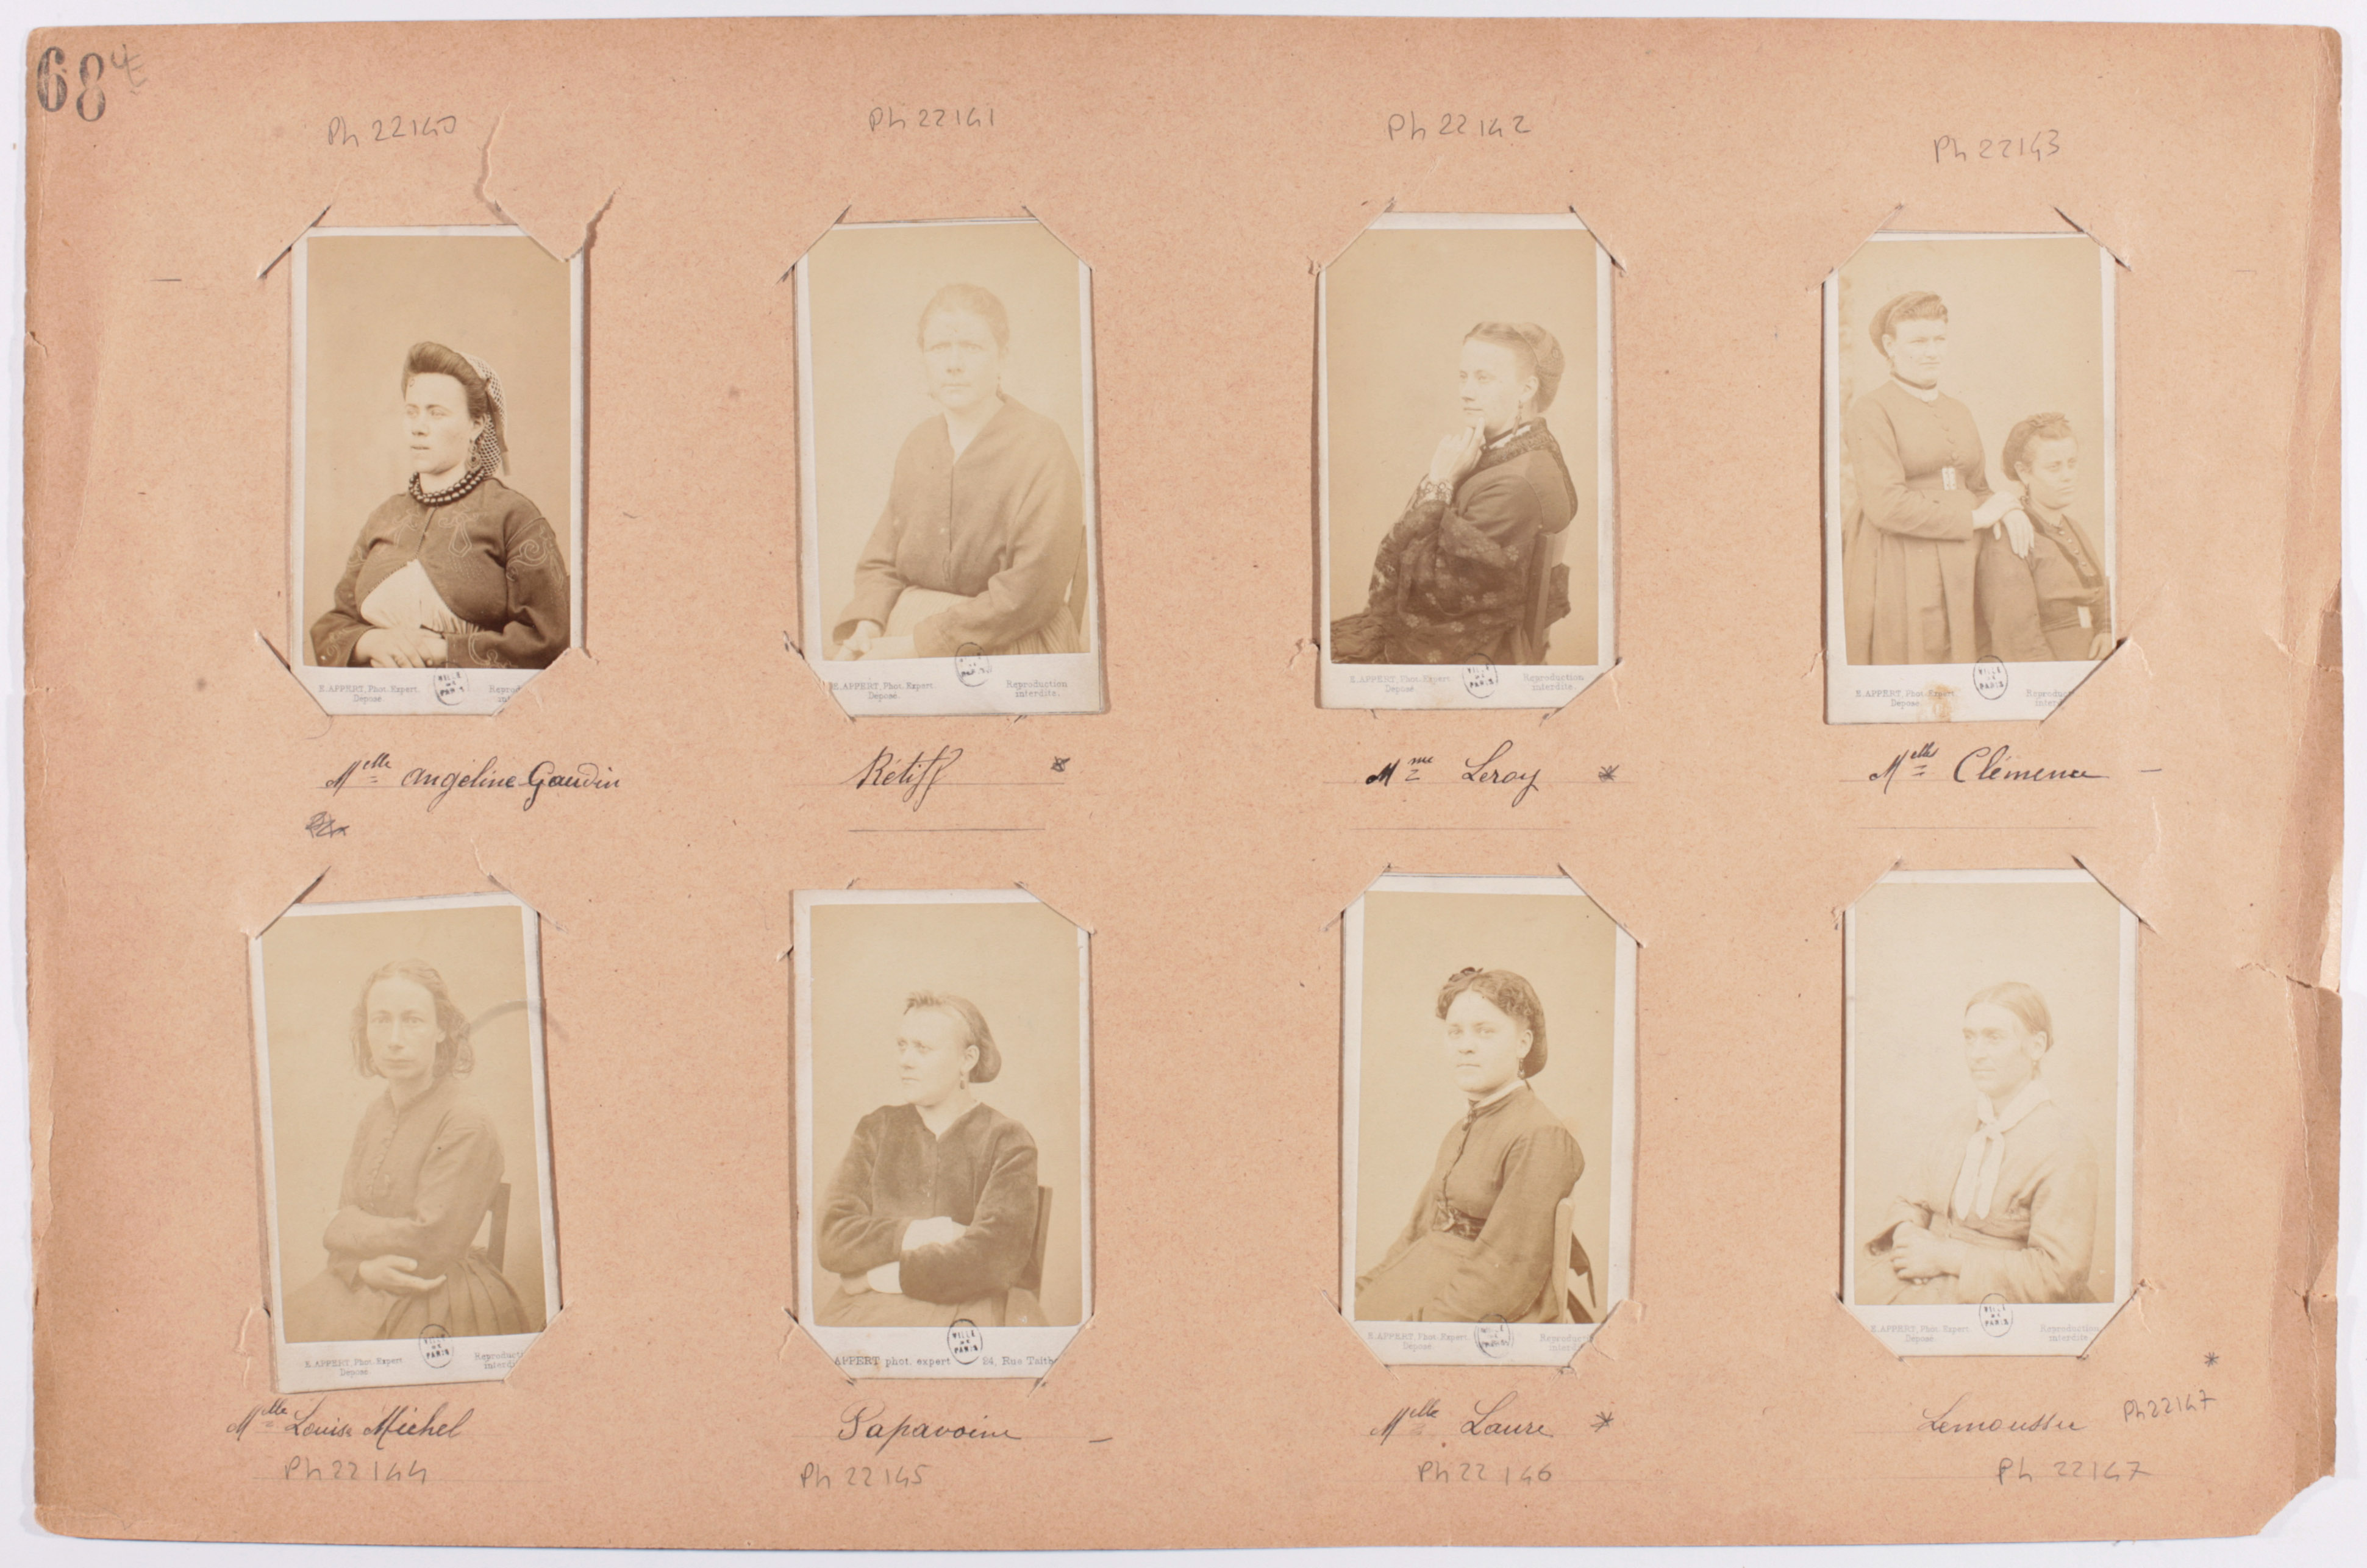 68 4
Ph 22140
Ph 22141
Ph 22142
Ph 22143
E. APPERT, Phot. Expert.
Déposé.
VILLE DE PARIS
Reprod
int
E. APPERT, Phot. Expert.
Déposé.
VILLE DE PARIS
Reproduction
interdite.
E. APPERT, Phot. Expert.
Déposé.
VILLE DE PARIS
Reproduction
interdite.
E. APPERT, Phot. Expert.
Déposé.
VILLE DE PARIS
Reproduct
inter
Melle Angéline Gaudin
Rétiff
Mme Leroy
Melles Clémence
E. APPERT, Phot. Expert
Déposé.
VILLE DE PARIS
Reproducti
interdi
APPERT phot. expert
VILLE DE PARIS
24, Rue Taitb
E. APPERT, Phot. Expert.
Déposé.
VILLE DE PARIS
Reproduct
interd
E. APPERT, Phot. Expert.
Déposé.
VILLE DE PARIS
Reproduction
interdite
Melle Louise Michel
Papavoine
Melle Laure
Lemoussu
Ph22147
Ph 22144
Ph 22145
Ph 22146
Ph 22147